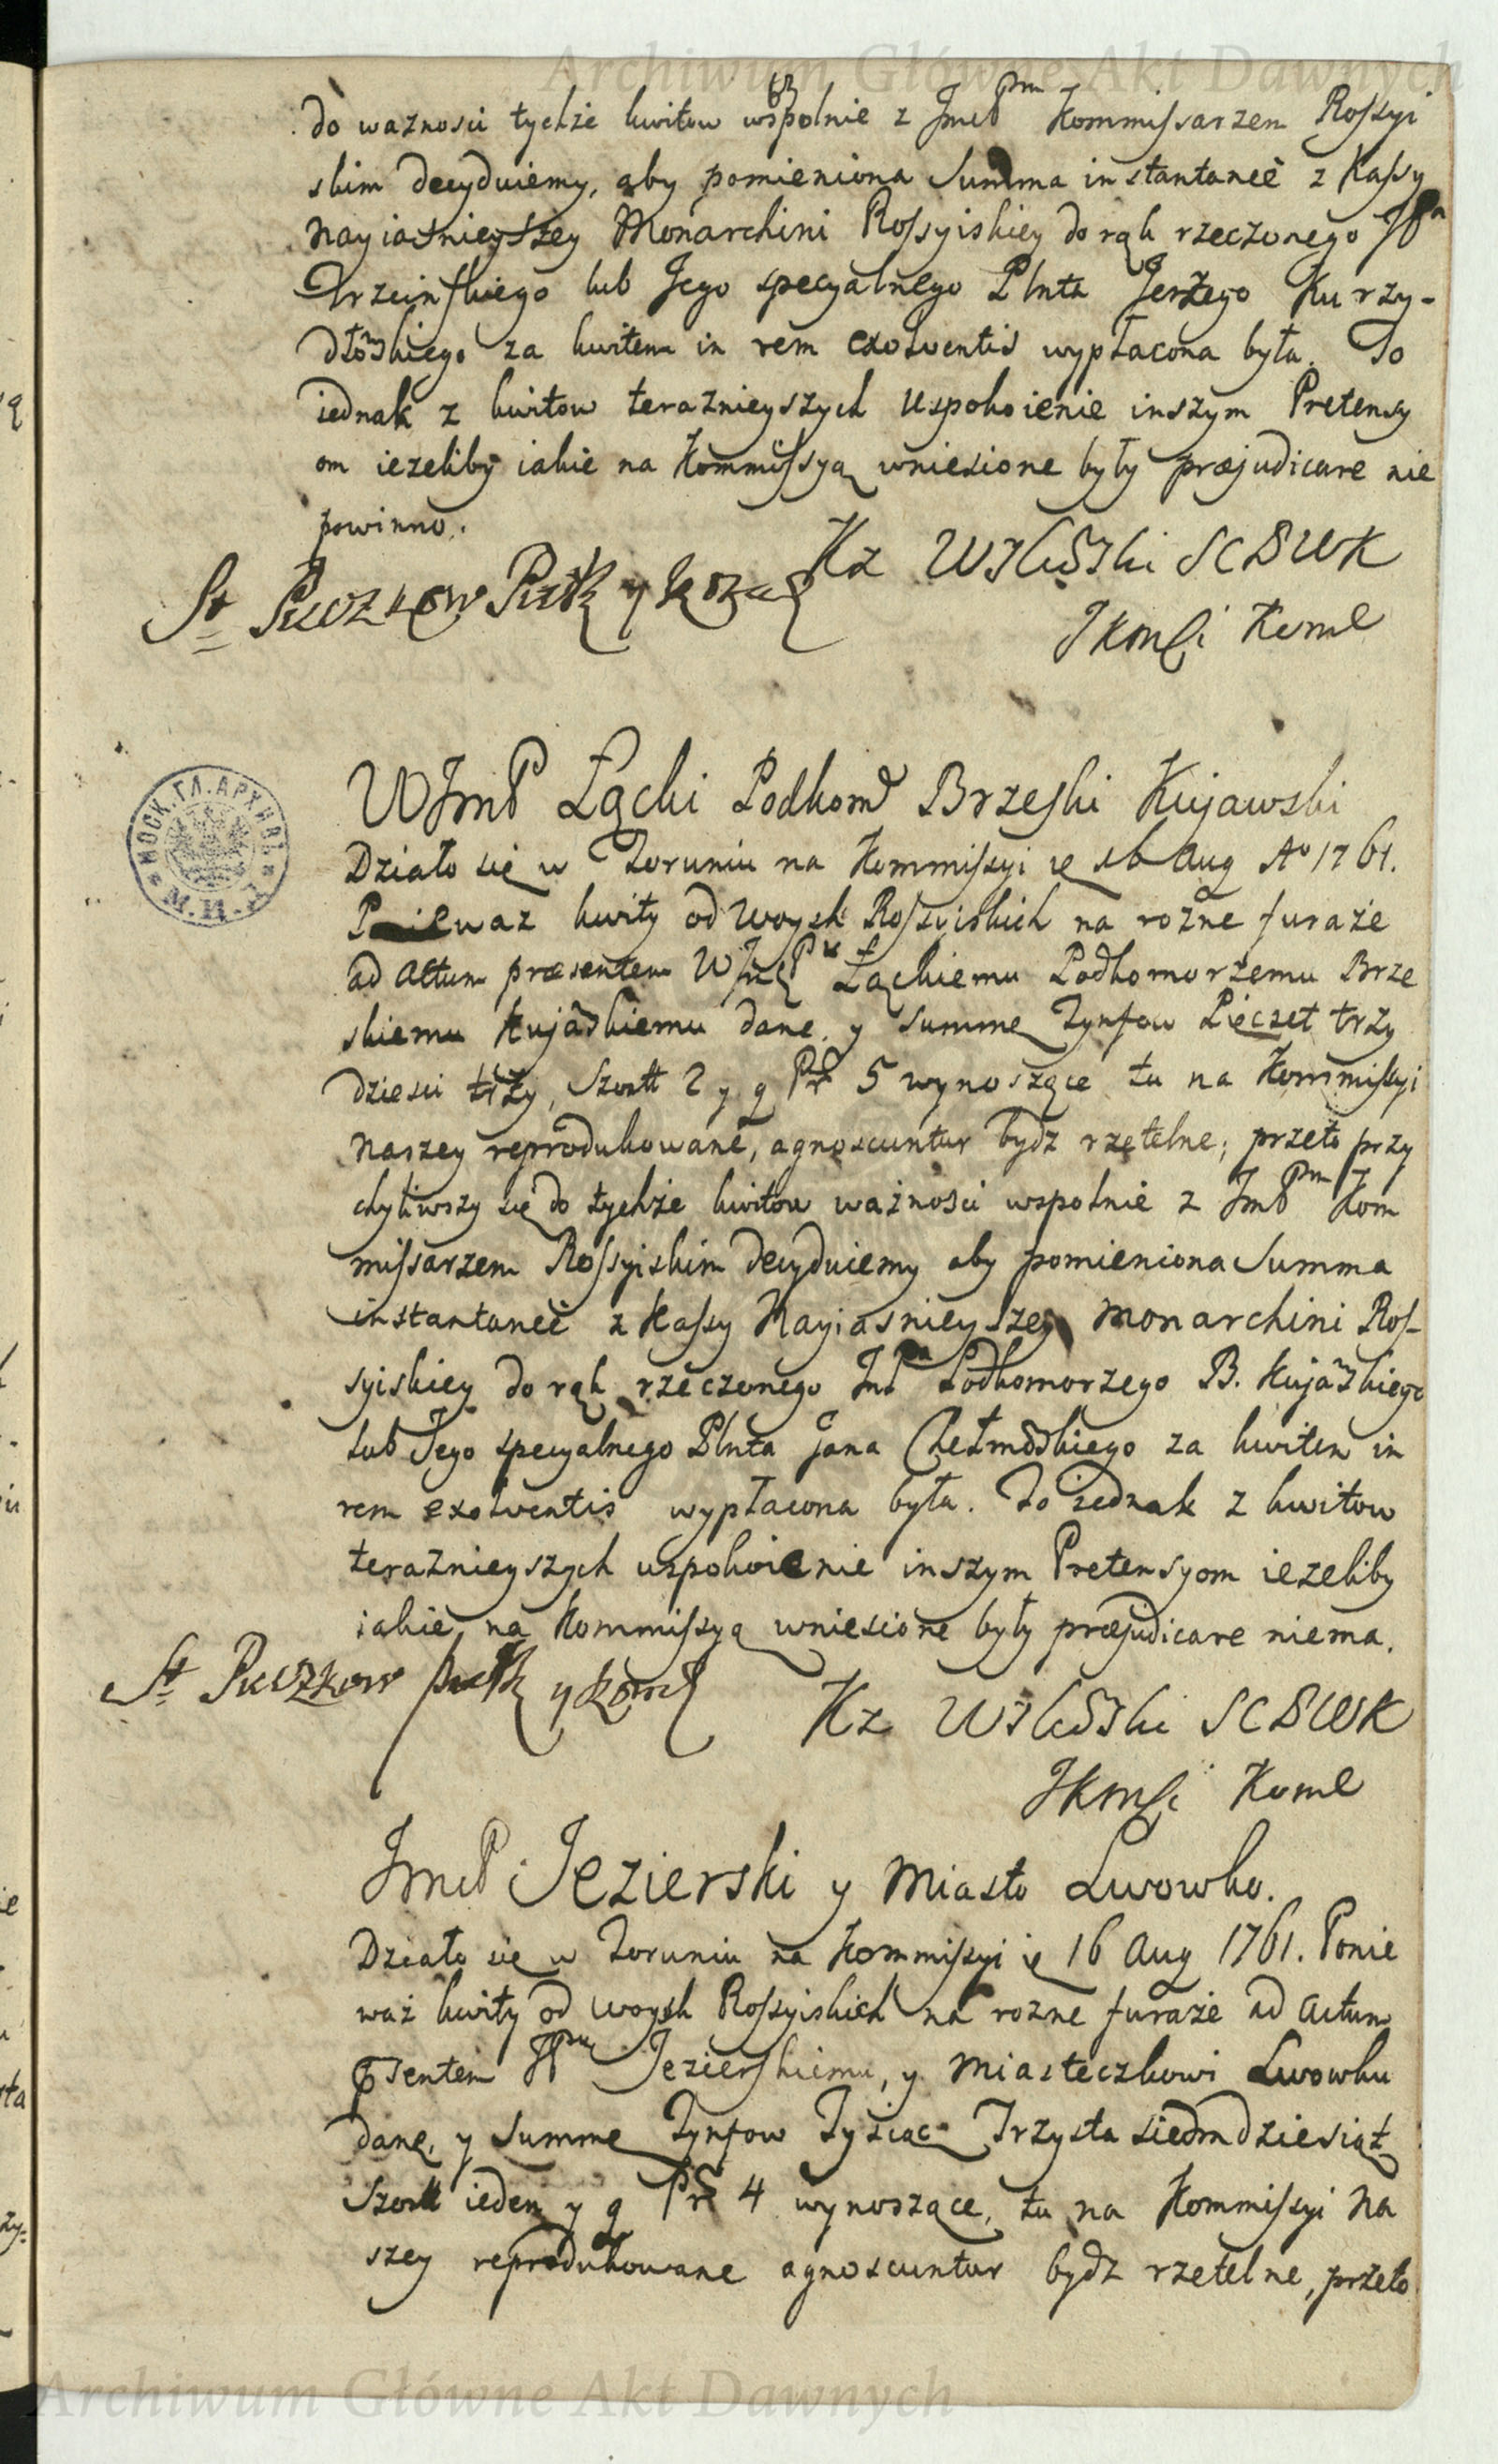 Archiwum Główne Akt Dawnych
do waznosci tychże kwitow wspolnie z Jmcp Pm Kommissarzem Rossyi
skim decyduiemy, aby pomieniona Summa instantaneè z Kassy
Nayiasnieyszey Monarchini Rossyiskiey do rąk rzeczonego JPa
Trzcinskiego lub Jego specyalnego Plnta Jerzego Kurzy-
dłowskiego za kwitem in rem exolventis wypłacona była. To
iednak z kwitow teraznieyszych uspokoienie inszym Pretensy
om iezeliby iakie na Kommissyą wniesione były præjudicare nie
powinno.
St Puczkow
SCBWK
WJmP Łącki Podkom Brzeski Kujawski
Działo się w Toruniu na Kommissyi ie 16 Aug Ao 1761.
Poniewaz kwity od Woysk Rossyiskich na rożne furaże
ad Actum præsentem Łąckiemu Podkomorzemu Brze
skiemu Kujaskiemu dane, y summę Tynfow Pięcset trzy
dziesci trzy, Szost 2 y g Pr 5 wynoszące tu na Kommissyi
Naszey reprodukowane, agnoscuntur bydz rzetelne; przeto przy
chyliwszy się do tychże kwitow ważnosci wspolnie z JmP Pm Kom
missarzem Rossyiskim decyduiemy aby pomieniona Summa
instantaneè z Kassy Nayiasnieyszey Monarchini Ros-
syiskiey do rąk rzeczonego JmPa Podkomorzego B. Kujaskiego
lub Jego specyalnego Plnta Jana Chełmoskiego za kwitem in
rem exolventis wypłacona była. To iednak z kwitow
teraznieyszych uspokoienie inszym Pretensyom iezeliby
iakie na Kommissyą wniesione były præjudicare niema.
St Puczkow
SCBWK
МОСК. ГЛ. АРХИВЪ М.И.Д.
JmcP Jezierski y Miasto Lwowko.
Działo się w Toruniu na Kommissyi ie 16 Aug 1761. Ponie
waż kwity od Woysk Rossyiskich na rozne furaże ad Actum
Jezierskiemu, y Miasteczkowi Lwowku
dane, y summę Tynfow Tysiąc Trzysta siedmdziesiąt
Szost ieden y g Pr 4 wynoszące, tu na Kommissyi Na
szey reprodukowane agnoscuntur bydz rzetelne, przeto
Archiwum Główne Akt Dawnych